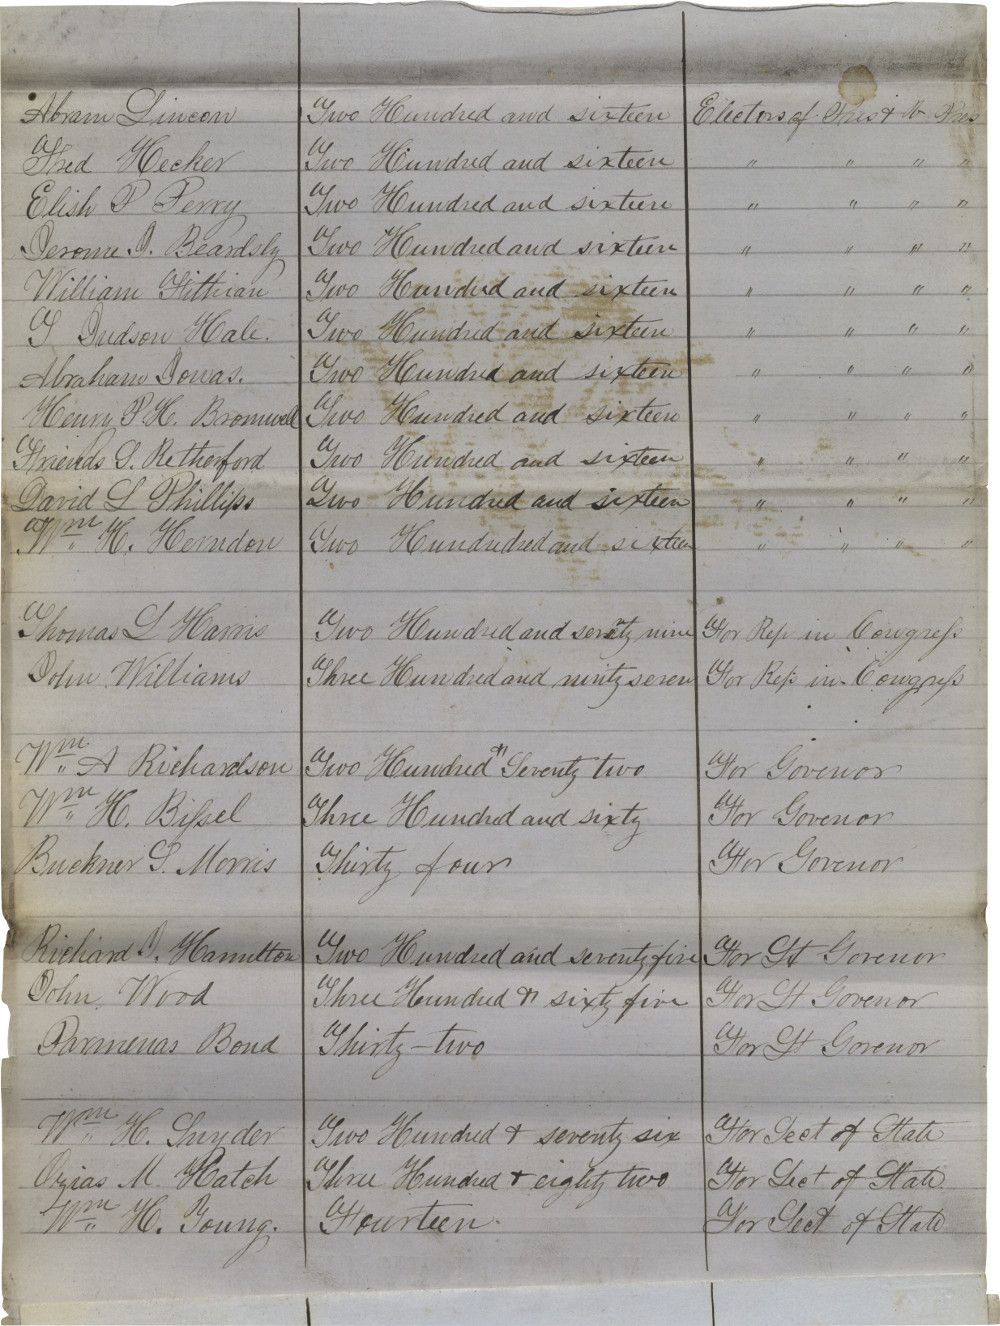 Abram Lincon Two Hundred and sixteen Electors of Pres & V. Pres
Fred Hecker Two Hundred and sixteen " " " "
Elish P Ferry Two Hundred and sixteen " " " "
Jerome J. Beardsly Two Hundred and sixteen " " " "
William Fithian Two Hundred and sixteen " " " "
T Judson Hale. Two Hundred and sixteen " " " "
Abraham Jonas. Two Hundred and sixteen " " " "
Henry P. H. Bromwell Two Hundred and sixteen " " " "
Friends S. Retherford Two Hundred and sixteen " " " "
David L Phillips Two Hundred and sixteen " " " "
Wm H. Herndon Two Hundudred and sixteen " " " "
Thomas L Harris Two Hundred and sevety nine For Rep in Congress
John Williams Three Hundred and ninty seven For Rep in Congress
Wm A Richardson Two Hundred & Seventy two For Govenor
Wm H. Bissel Three Hundred and sixty For Govenor
Buckner S. Morris Thirty four For Govenor
Richard J. Hamilton Two Hundred and seventy five For Lt Govenor
John Wood Three Hundred & sixty five For Lt Govenor
Parmenas Bond Thirty-two For Lt Govenor
Wm H. Snyder Two Hundred & seventy six For Sect of State
Ozias M Hatch Three Hundred & eighty two For Sect of State
Wm H. Young. Fourteen. For Sect of State